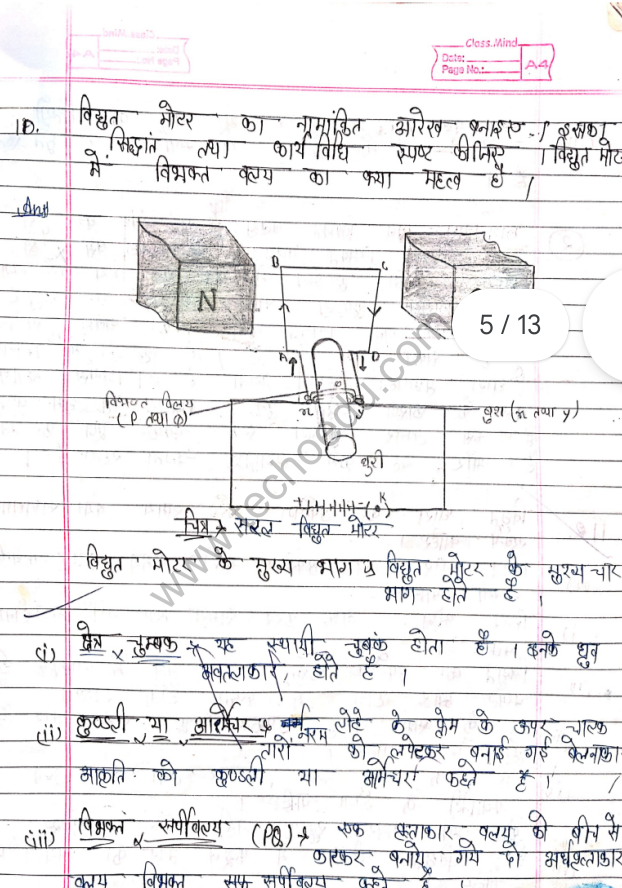 Class Mind
Date:
Page No.:
A4
10. विद्युत मोटर का नामांकित आरेख बनाइए । इसका
सिद्धांत तथा कार्यविधि स्पष्ट कीजिए । विद्युत मोटर
में विभक्त वलय का क्या महत्व है ।
Ans
N
B
C
A
D
5 / 13
विभक्त वलय
(P तथा Q)
x
y
बुश (x तथा y)
धुरी
K
चित्र → सरल विद्युत मोटर
www.techoedu.com
विद्युत मोटर के मुख्य भाग → विद्युत मोटर के मुख्य चार
भाग होते है ।
(i) क्षेत्र चुम्बक → यह स्थायी चुबंक होता है । इनके ध्रुव
अवतलाकार होते है ।
(ii) कुण्डली या आर्मेचर → नरम लोहे के फ्रेम के ऊपर चालक
तारों को लपेटकर बनाई गई बेलनाका
आकृति को कुण्डली या आर्मेचर कहते है ।
(iii) विभक्त सर्पीवलय (PQ) → एक वृत्ताकार वलय को बीच से
काटकर बनाये गये दो अर्धवृत्ताकार
वलय विभक्त सर्पीवलय कहते है ।